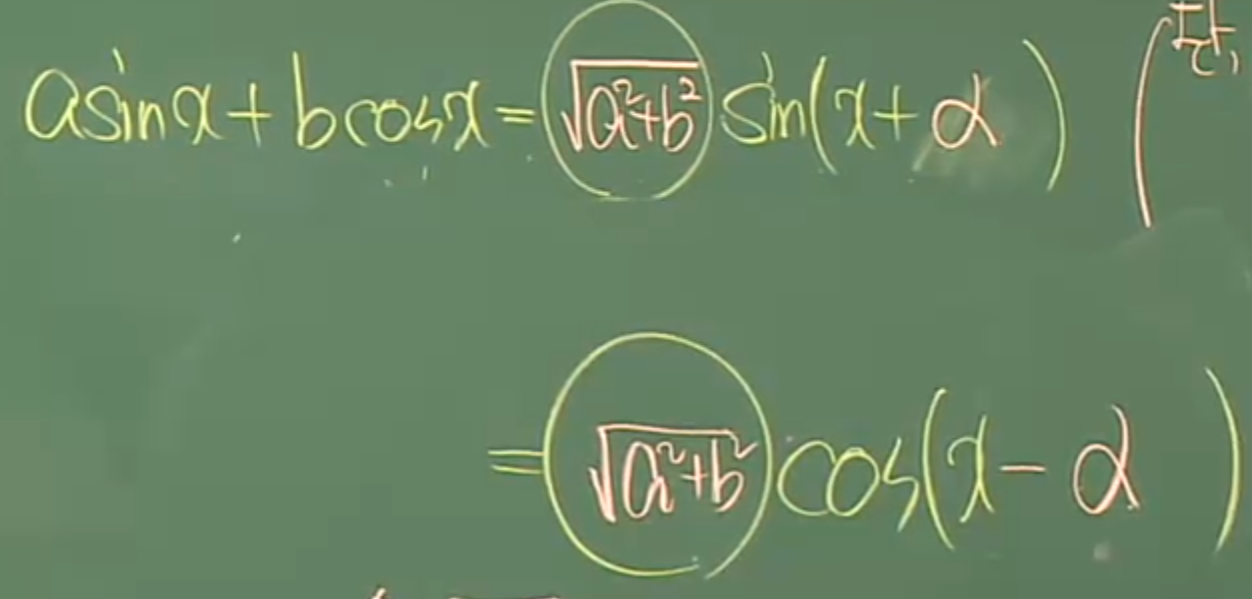 asinx + bcosx = √(a²+b²) sin(x+α) (단,
= √(a²+b²) cos(x-α)